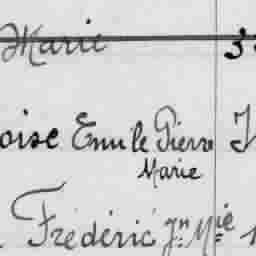 Marie 3
oise Emile Pierre J
Marie
Frédéric Jn Mie